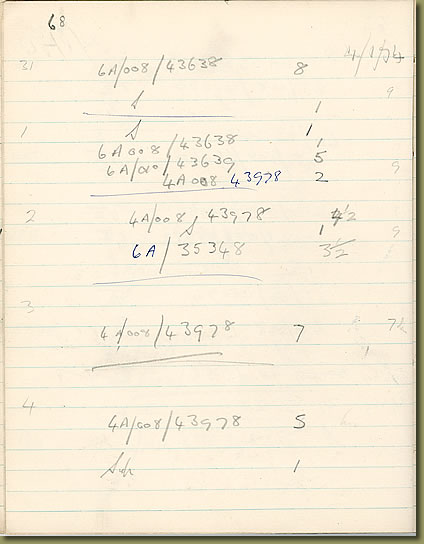 68
4/1/74
31 6A/008/43638 8
S 1 9
1 S 1
6A008/43638 1
6A/008/43639 5 9
4A008 43978 2
2 4A/008/43978 4½
S 1 9
6A/35348 3½
3
4A/008/43978 7 7½
4
4A/008/43978 5
1